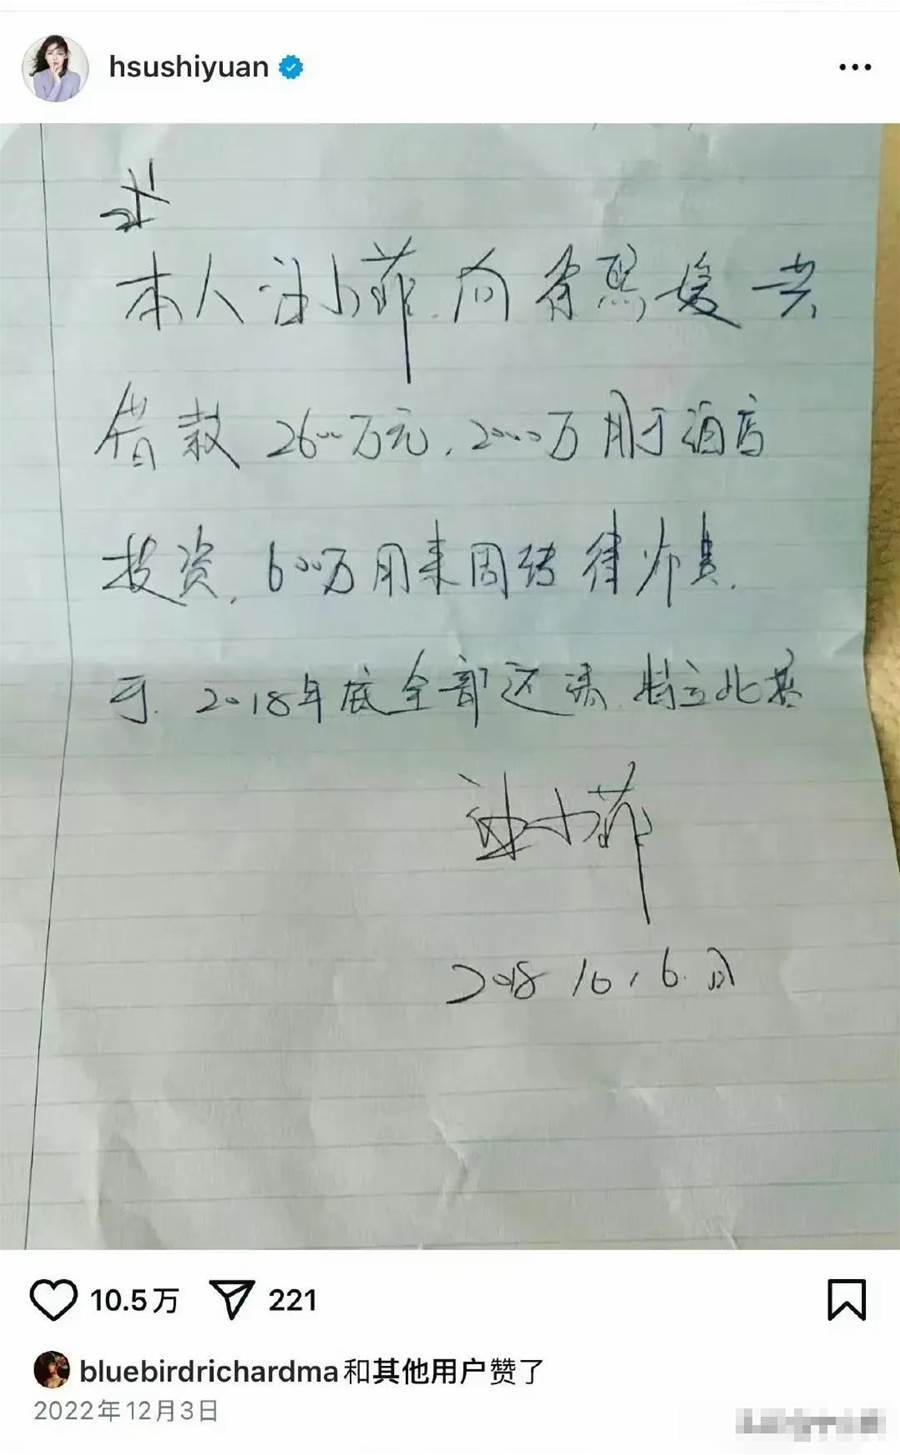 hsushiyuan
本人汪小菲向徐熙媛共
借款2600万元,2000万用于酒店
投资,600万用来周转律师费.
于2018年底全部还清.特立此据
汪小菲
2018 10,6.日
10.5万 221
bluebirdrichardma和其他用户赞了
2022年12月3日